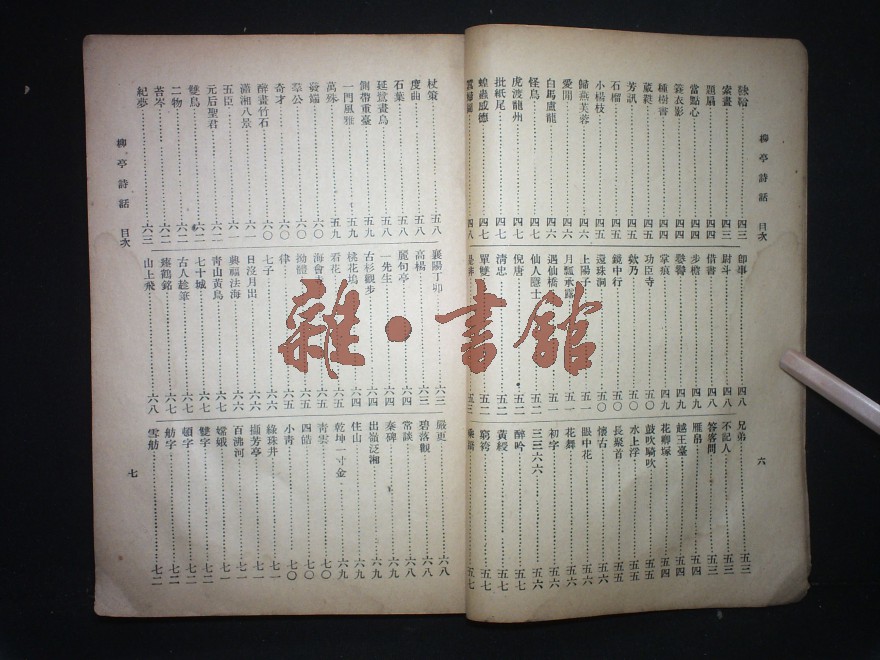 柳亭詩話 目次
六
詠蛤 四三
索畫 四三
題扇 四三
當點心 四四
簑衣影 四四
種樹書 四四
葳蕤 四四
芳訊 四五
石榴 四五
小楊枝 四五
歸燕芙蓉 四六
愛閒 四六
白馬盧龍 四六
怪鳥 四七
虎渡龍州 四七
批紙尾 四七
蝗蟲感德 四七
四八
卽事 四八
尉斗 四八
借書 四八
步檐 四九
卷臠 四九
掌痕 四九
功臣寺 五〇
欸乃 五〇
鏡中行 五〇
還珠洞 五〇
上陽子 五一
月瓢承露 五一
遇仙橋 五一
仙人隱士 五二
倪唐 五二
清忠 五二
單雙 五二
五三
兄弟 五三
不記人 五三
答客問 五三
雁帛 五四
越王臺 五四
花卿塚 五四
鼓吹騎吹 五五
水上浮 五五
長聚首 五五
懷古 五五
眼中花 五六
花舞 五六
初字 五六
三三六六 五六
醉吟 五七
黃綬 五七
窮袴 五七
五七
杖策 五八
度曲 五八
石葉 五八
延鷺畫鳥 五八
側帶重臺 五九
一門風雅 五九
萬殊 五九
發端 六〇
羣公 六〇
奇才 六〇
醉畫竹石 六〇
瀟湘八景 六一
五臣 六一
元后聖君 六二
雙鳥 六二
二物 六二
苔岑 六二
紀夢 六三
襄陽丁卯 六三
高楊 六三
麗句亭 六四
一先生 六四
古杉觀步 六四
桃花塢 六四
看花 六五
海會寺 六五
拗體 六五
律 六五
七子 六六
日沒月出 六六
興福法海 六六
靑山黃鳥 六七
七十城 六七
古人趁筆 六七
瘞鶴銘 六七
山上飛 六八
嚴更 六八
碧落觀 六八
常談 六八
秦碑 六八
出嶺泛湘 六九
住山 六九
乾坤一寸金 六九
靑雲 七〇
四皓 七〇
小靑 七〇
綠珠井 七一
擷芳亭 七一
百沸河 七一
嫦娥 七一
雙字 七二
頓字 七二
舫字 七二
雪舫 七二
柳亭詩話 目次
七
雜·書館